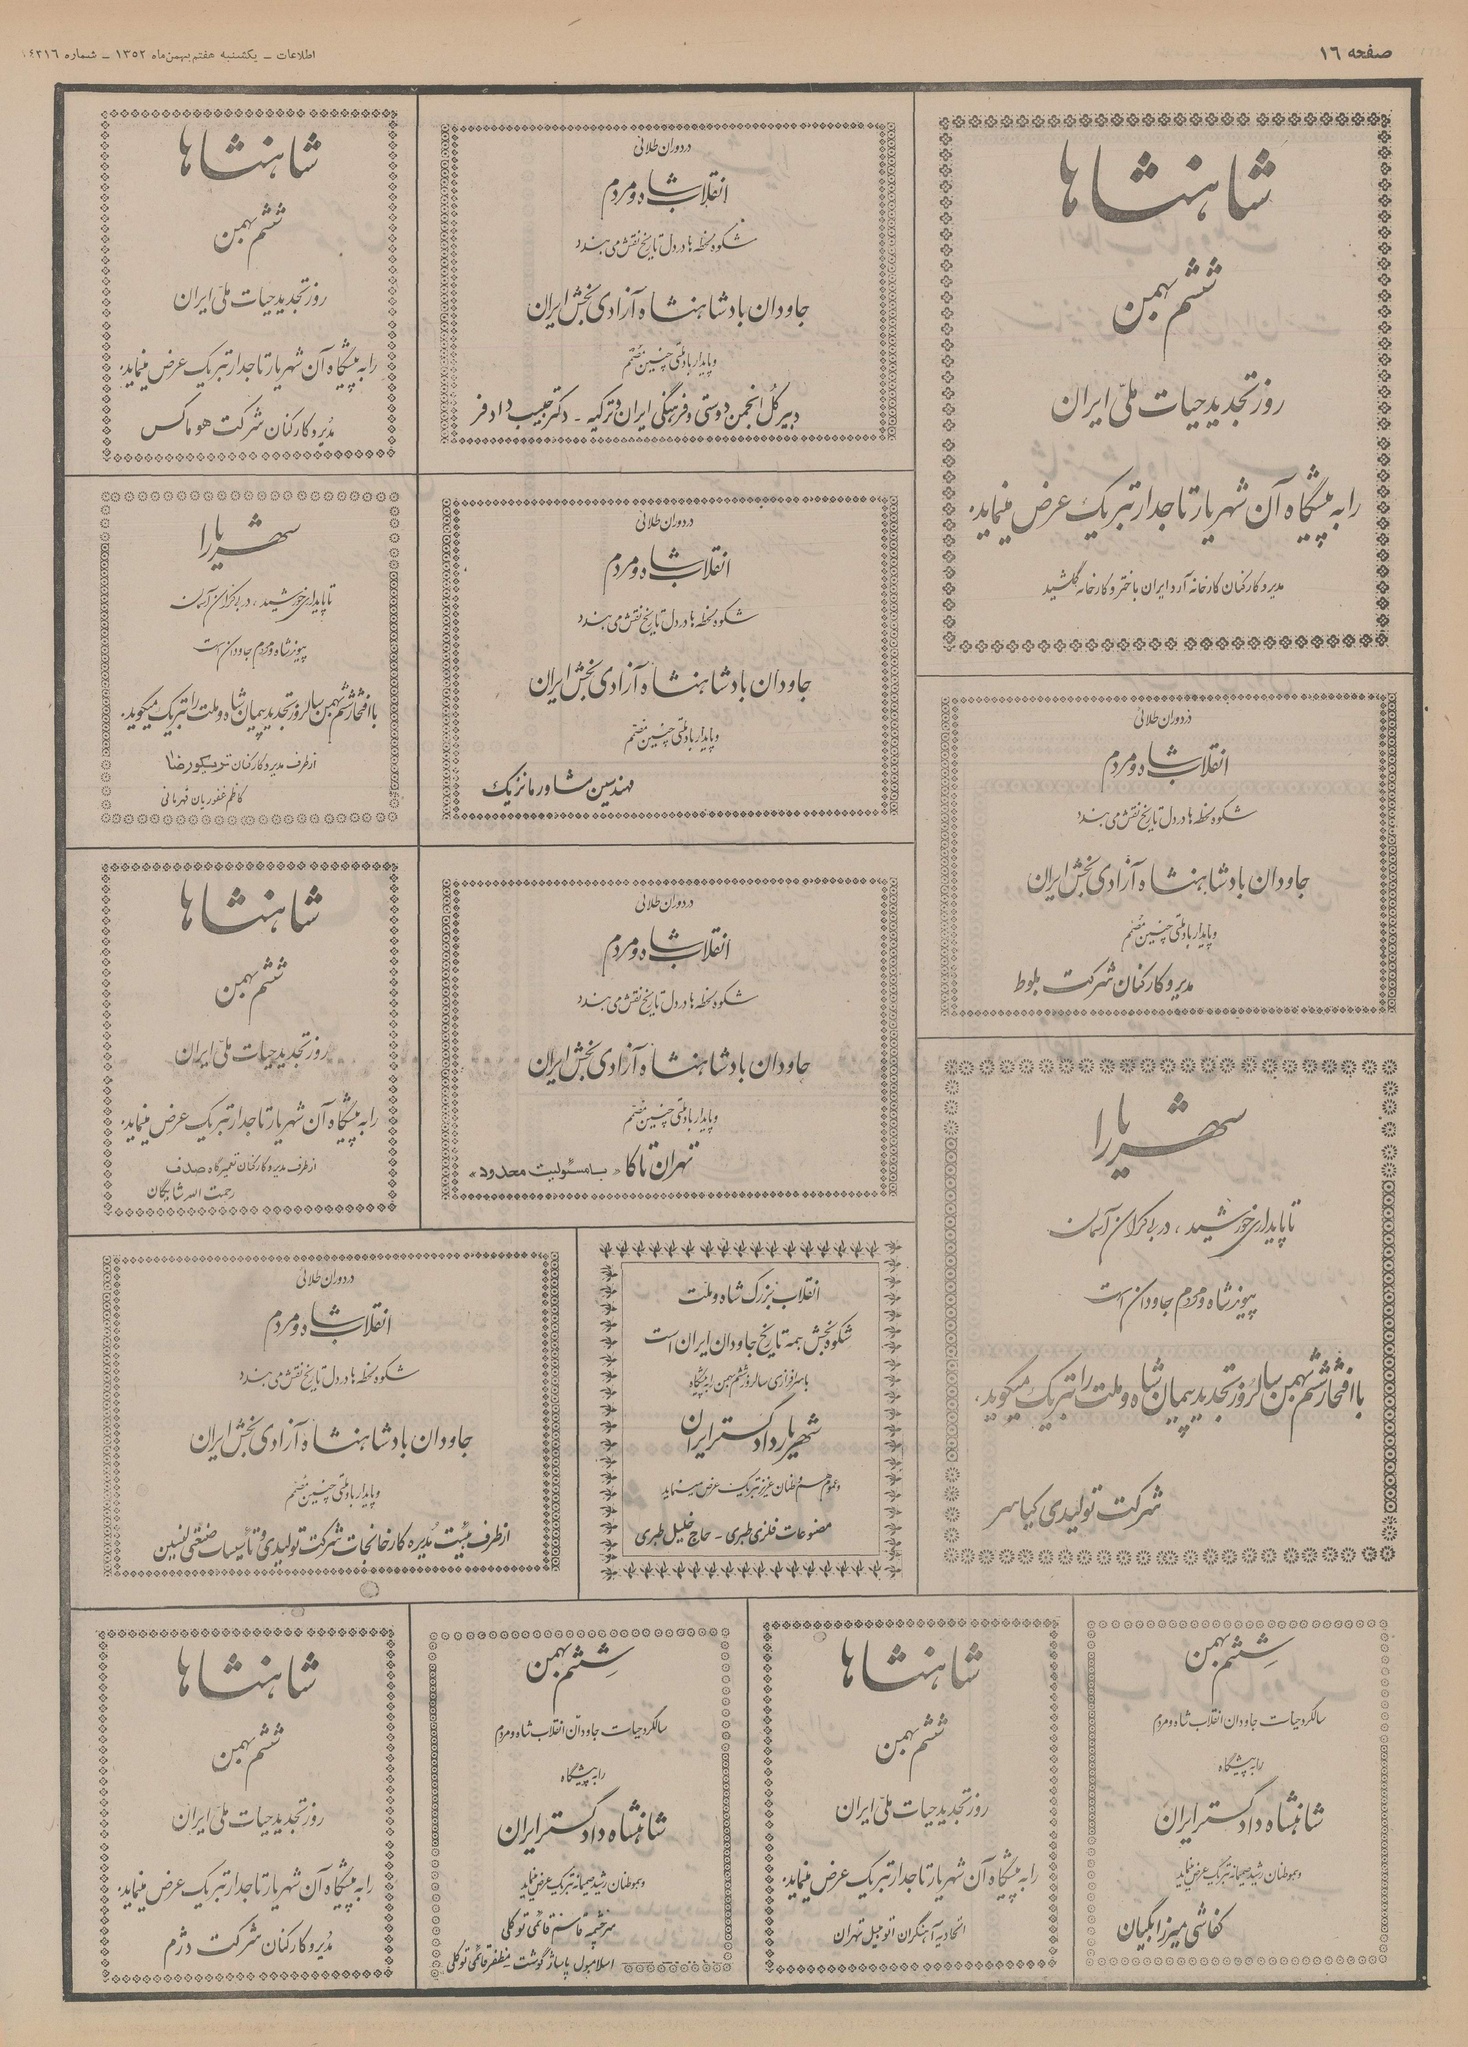 صفحه ۱۶
اطلاعات ـ یکشنبه هفتم بهمن‌ماه ۱۳۵۲ ـ شماره ۱۴۳۱۶
شاهنشاها
ششم بهمن
روز تجدید حیات ملی ایران
را به پیشگاه آن شهریار تاجدار تبریک عرض مینماید.
مدیر و کارکنان کارخانه آرد ایران باختر و کارخانه گلشید
در دوران طلائی
انقلاب شاه و مردم
شکوه لحظه‌ها در دل تاریخ نقش می‌بندد
جاودان باد شاهنشاه آزادی بخش ایران
و پایدار باد ملتی چنین مصمم
مدیر و کارکنان شرکت بلوط
شهریارا
تا پایداری خورشید ، در بی‌کران آسمان
پیوند شاه و مردم جاودان است
با افتخار ششم بهمن سالروز تجدید پیمان شاه و ملت را تبریک میگوید.
شرکت تولیدی کیاسر
در دوران طلائی
انقلاب شاه و مردم
شکوه لحظه‌ها در دل تاریخ نقش می‌بندد
جاودان باد شاهنشاه آزادی بخش ایران
و پایدار باد ملتی چنین مصمم
دبیر کل انجمن دوستی و فرهنگی ایران و ترکیه ـ دکتر حبیب دادفر
در دوران طلائی
انقلاب شاه و مردم
شکوه لحظه‌ها در دل تاریخ نقش می‌بندد
جاودان باد شاهنشاه آزادی بخش ایران
و پایدار باد ملتی چنین مصمم
مهندسین مشاور مانزیک
در دوران طلائی
انقلاب شاه و مردم
شکوه لحظه‌ها در دل تاریخ نقش می‌بندد
جاودان باد شاهنشاه آزادی بخش ایران
و پایدار باد ملتی چنین مصمم
تهران تاکا «با مسئولیت محدود»
شاهنشاها
ششم بهمن
روز تجدید حیات ملی ایران
را به پیشگاه آن شهریار تاجدار تبریک عرض مینماید.
مدیر و کارکنان شرکت هوماکس
شهریارا
تا پایداری خورشید ، در بی‌کران آسمان
پیوند شاه و مردم جاودان است
با افتخار ششم بهمن سالروز تجدید پیمان شاه و ملت را تبریک میگوید.
از طرف مدیر و کارکنان تریکو رضا
کاظم غفوریان قهرمانی
شاهنشاها
ششم بهمن
روز تجدید حیات ملی ایران
را به پیشگاه آن شهریار تاجدار تبریک عرض مینماید.
از طرف مدیر و کارکنان تعمیرگاه صدف
رحمت الله شایگان
انقلاب بزرگ شاه و ملت
شکوه بخش همه تاریخ جاودان ایران است
با سرافرازی سالروز ششم بهمن را به پیشگاه
شهریار دادگستر ایران
و عموم هموطنان عزیز تبریک عرض مینماید
مصنوعات فلزی طبری ـ حاج خلیل طبری
در دوران طلائی
انقلاب شاه و مردم
شکوه لحظه‌ها در دل تاریخ نقش می‌بندد
جاودان باد شاهنشاه آزادی بخش ایران
و پایدار باد ملتی چنین مصمم
از طرف هیئت مدیره کارخانجات شرکت تولیدی و تأسیسات صنعتی
ششم بهمن
سالگرد حیات جاودان انقلاب شاه و مردم
را به پیشگاه
شاهنشاه دادگستر ایران
و هموطنان رشید صمیمانه تبریک عرض مینماید
کفاشی میرزابگیان
شاهنشاها
ششم بهمن
روز تجدید حیات ملی ایران
را به پیشگاه آن شهریار تاجدار تبریک عرض مینماید.
اتحادیه آهنگران اتومبیل تهران
ششم بهمن
سالگرد حیات جاودان انقلاب شاه و مردم
را به پیشگاه
شاهنشاه دادگستر ایران
و هموطنان رشید صمیمانه تبریک عرض مینماید
قاسم قائمی توکلی
اسلامبول پاساژ گوشت مظفر قائمی توکلی
شاهنشاها
ششم بهمن
روز تجدید حیات ملی ایران
را به پیشگاه آن شهریار تاجدار تبریک عرض مینماید.
مدیر و کارکنان شرکت دژم